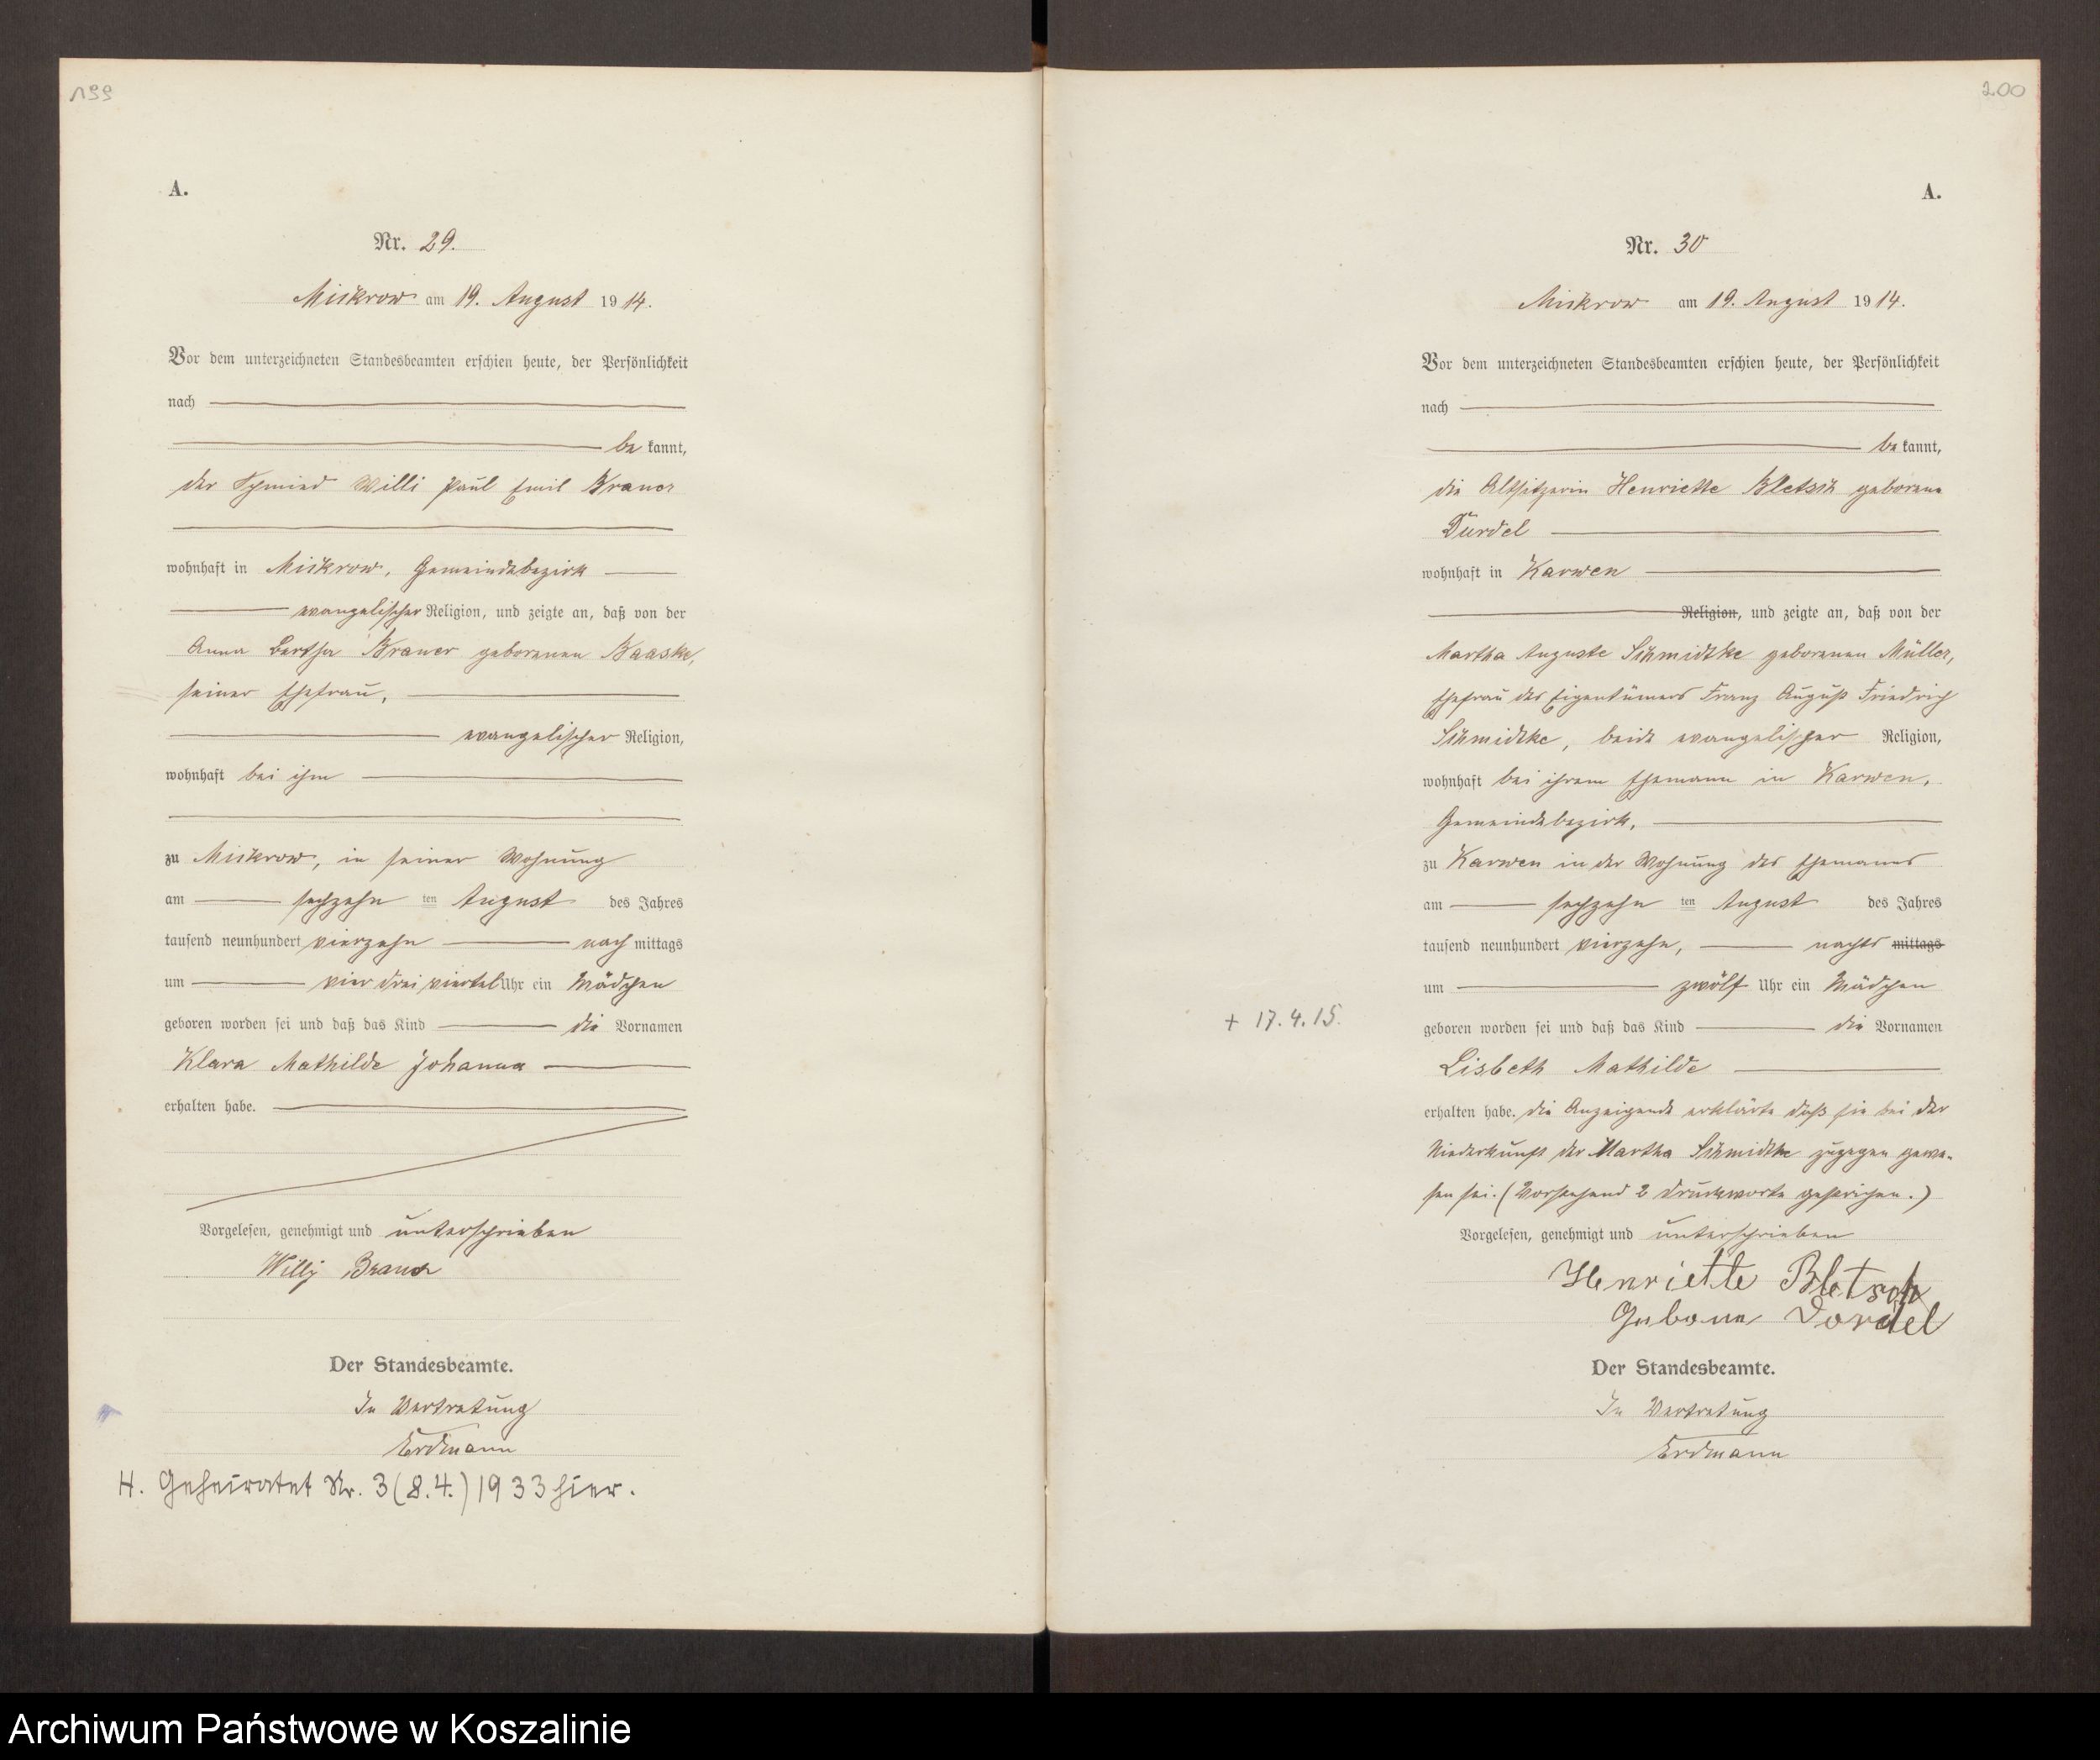 199
A.
Nr. 29.
Mickrow am 19. August 1914.
Vor dem unterzeichneten Standesbeamten erschien heute, der Persönlichkeit
nach
be kannt,
der Schmied Willi Paul Emil Brauer
wohnhaft in Mickrow, Gemeindebezirk
evangelischer Religion, und zeigte an, daß von der
Anna Bertha Brauer geborenen Baaske,
seiner Ehefrau,
evangelischer Religion,
wohnhaft bei ihm
zu Mickrow, in seiner Wohnung
am sechzehn ten August des Jahres
tausend neunhundert vierzehn nach mittags
um vier drei viertel Uhr ein Mädchen
geboren worden sei und daß das Kind die Vornamen
Klara Mathilde Johanna
erhalten habe.
Vorgelesen, genehmigt und unterschrieben
Willy Brauer
Der Standesbeamte.
In Vertretung
Erdmann
H. Geheiratet Nr. 3 (8.4.) 1933 hier.
200
A.
Nr. 30
Mickrow am 19. August 1914.
Vor dem unterzeichneten Standesbeamten erschien heute, der Persönlichkeit
nach
be kannt,
die Altsitzerin Henriette Bletsch geborene
Durdel
wohnhaft in Karwen
Religion, und zeigte an, daß von der
Martha Auguste Schmidtke geborenen Müller,
Ehefrau des Eigentümers Franz August Friedrich
Schmidtke, beide evangelischer Religion,
wohnhaft bei ihrem Ehemann in Karwen,
Gemeindebezirk,
zu Karwen in der Wohnung des Ehemanns
am sechzehn ten August des Jahres
tausend neunhundert vierzehn, nachts mittags
um zwölf Uhr ein Mädchen
+ 17.4.15.
geboren worden sei und daß das Kind die Vornamen
Lisbeth Mathilde
erhalten habe. die Anzeigende erklärte daß sie bei der
Niederkunft der Martha Schmidtke zugegen gewe-
sen sei. (Vorstehend 2 Druckworte gestrichen.)
Vorgelesen, genehmigt und unterschrieben
Henriette Bletsch
Gebone Dordel
Der Standesbeamte.
In Vertretung
Erdmann
Archiwum Państwowe w Koszalinie